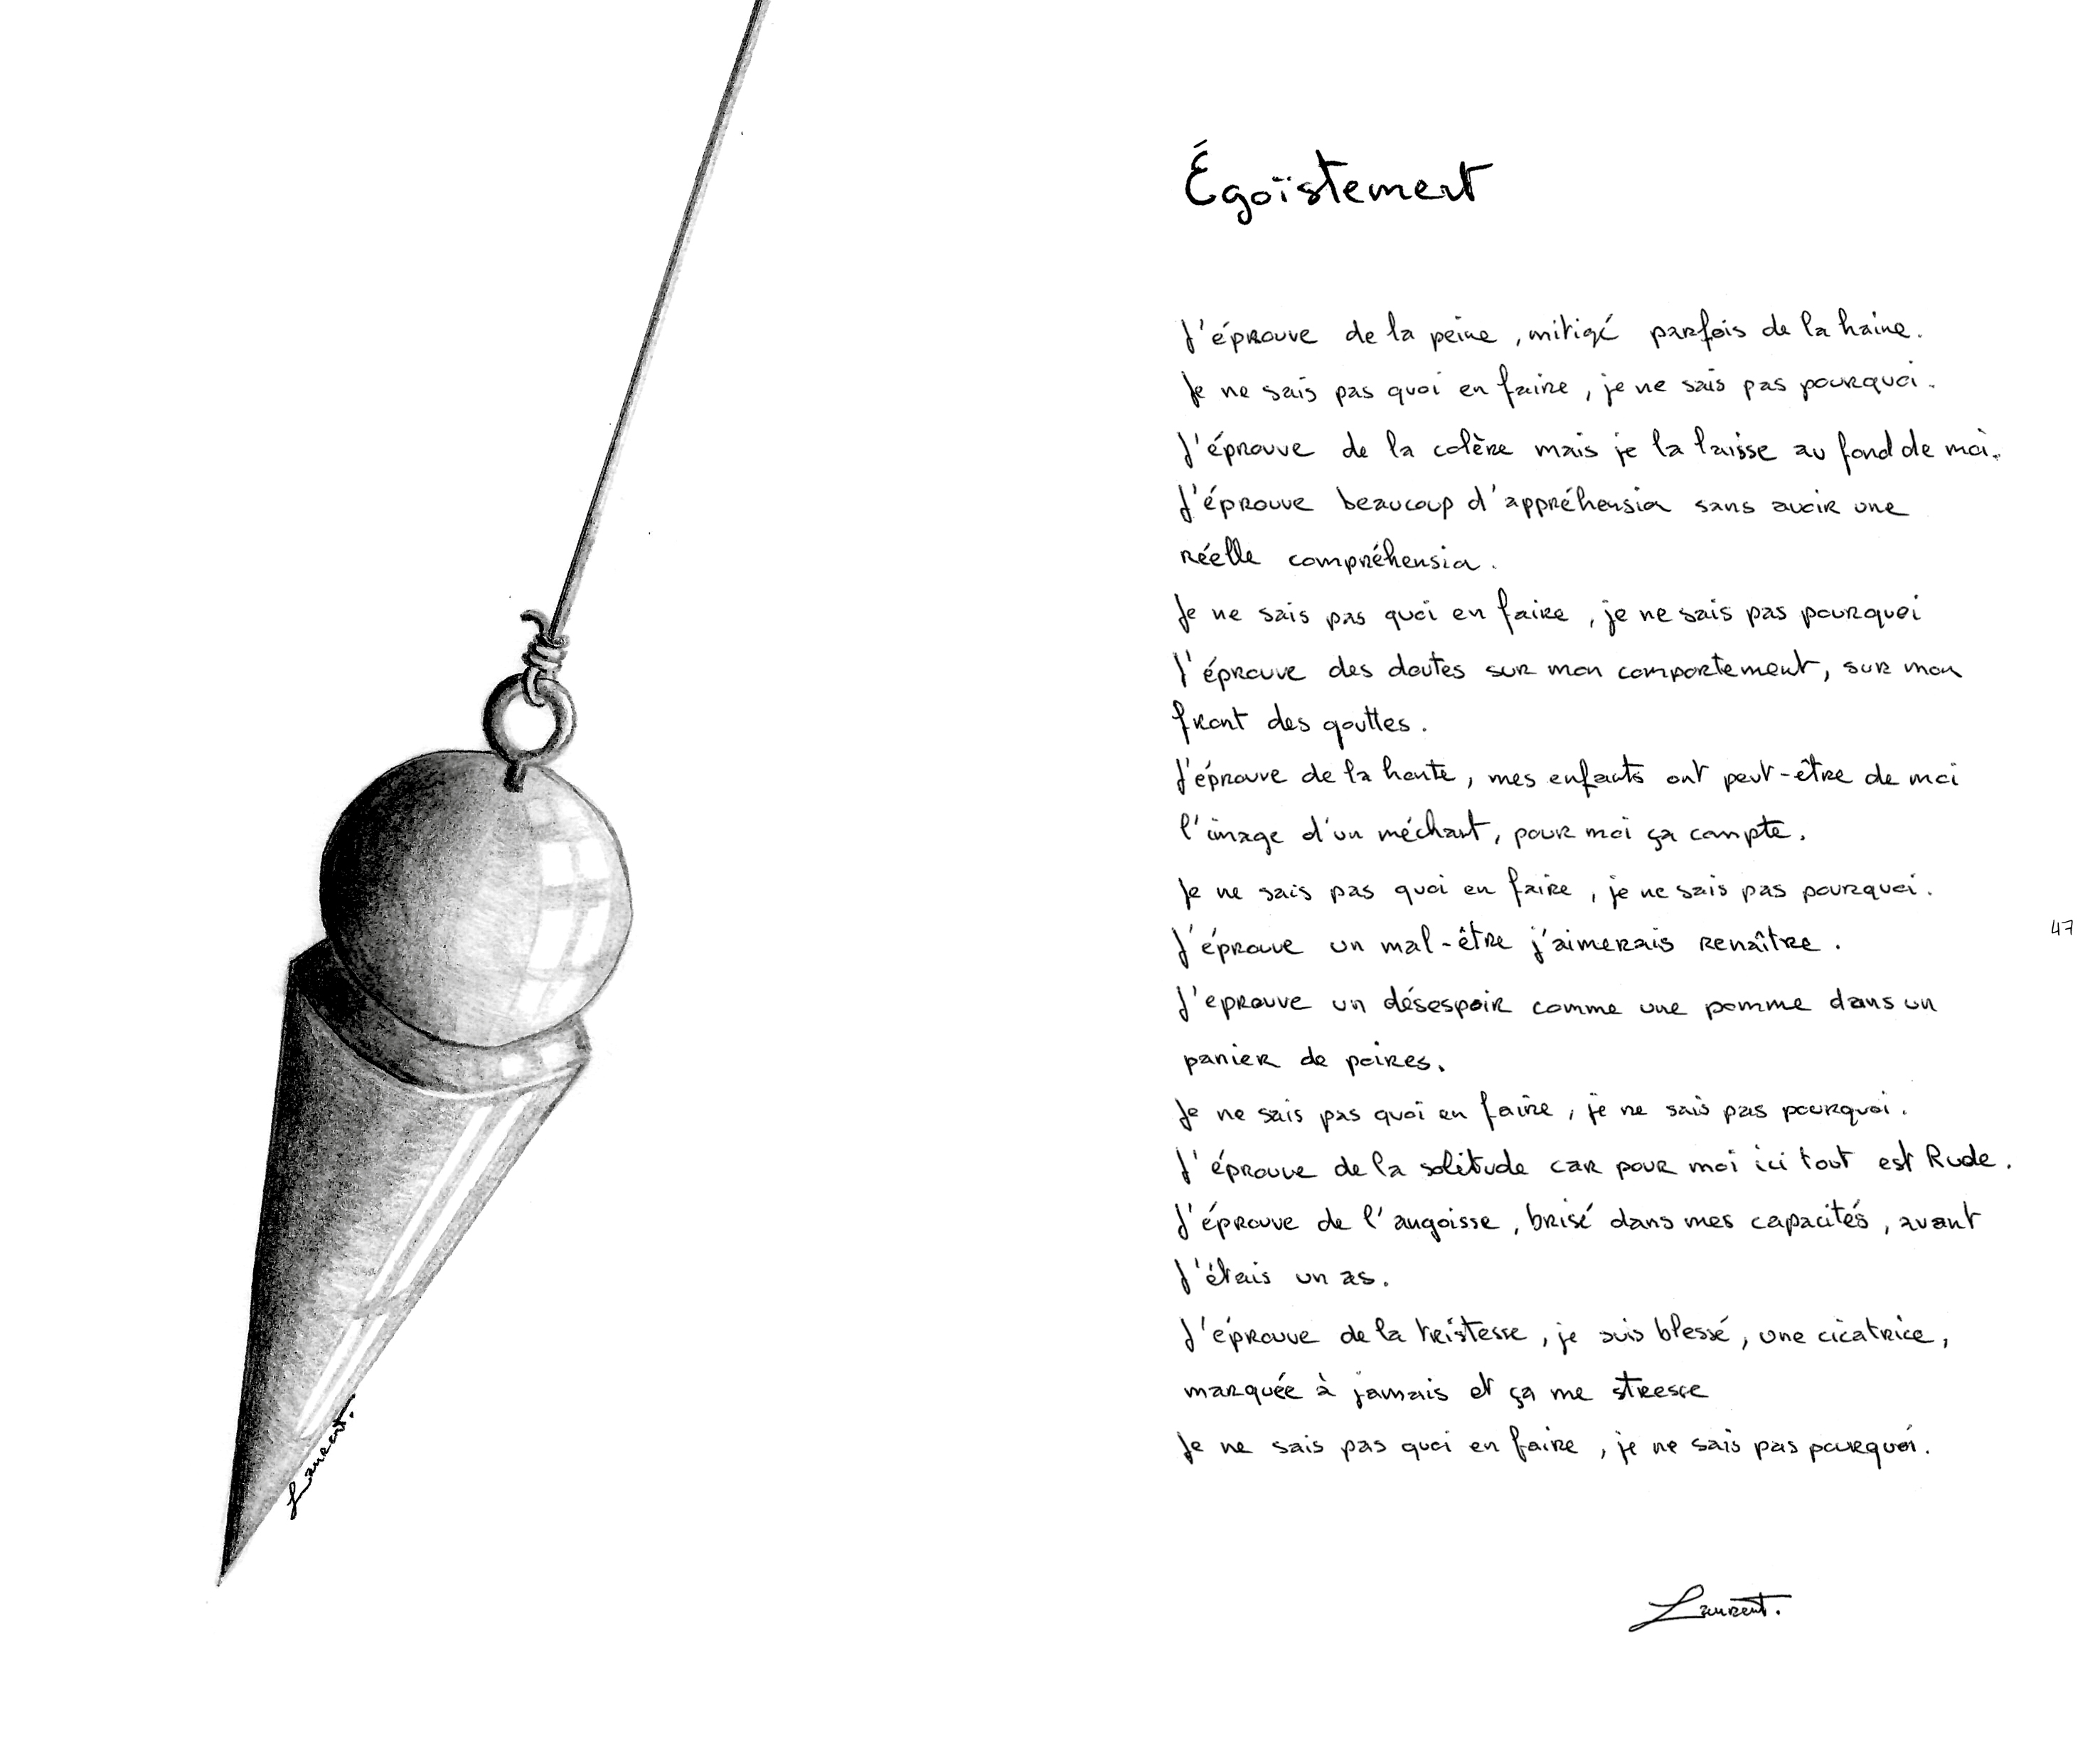 Égoïstement
J'éprouve de la peine, mitigé parfois de la haine.
Je ne sais pas quoi en faire, je ne sais pas pourquoi.
J'éprouve de la colère mais je la laisse au fond de moi.
J'éprouve beaucoup d'appréhension sans avoir une
réelle compréhension.
Je ne sais pas quoi en faire, je ne sais pas pourquoi
J'éprouve des doutes sur mon comportement, sur mon
front des gouttes.
J'éprouve de la honte, mes enfants ont peut-être de moi
l'image d'un méchant, pour moi ça compte.
Je ne sais pas quoi en faire, je ne sais pas pourquoi.
J'éprouve un mal-être j'aimerais renaître.
J'eprouve un désespoir comme une pomme dans un
panier de poires.
Je ne sais pas quoi en faire, je ne sais pas pourquoi.
J'éprouve de la solitude car pour moi ici tout est Rude.
J'éprouve de l'angoisse, brisé dans mes capacités, avant
J'étais un as.
J'éprouve de la tristesse, je suis blessé, une cicatrice,
marquée à jamais et ça me stresse
Je ne sais pas quoi en faire, je ne sais pas pourquoi.
Laurent.
Laurent.
47